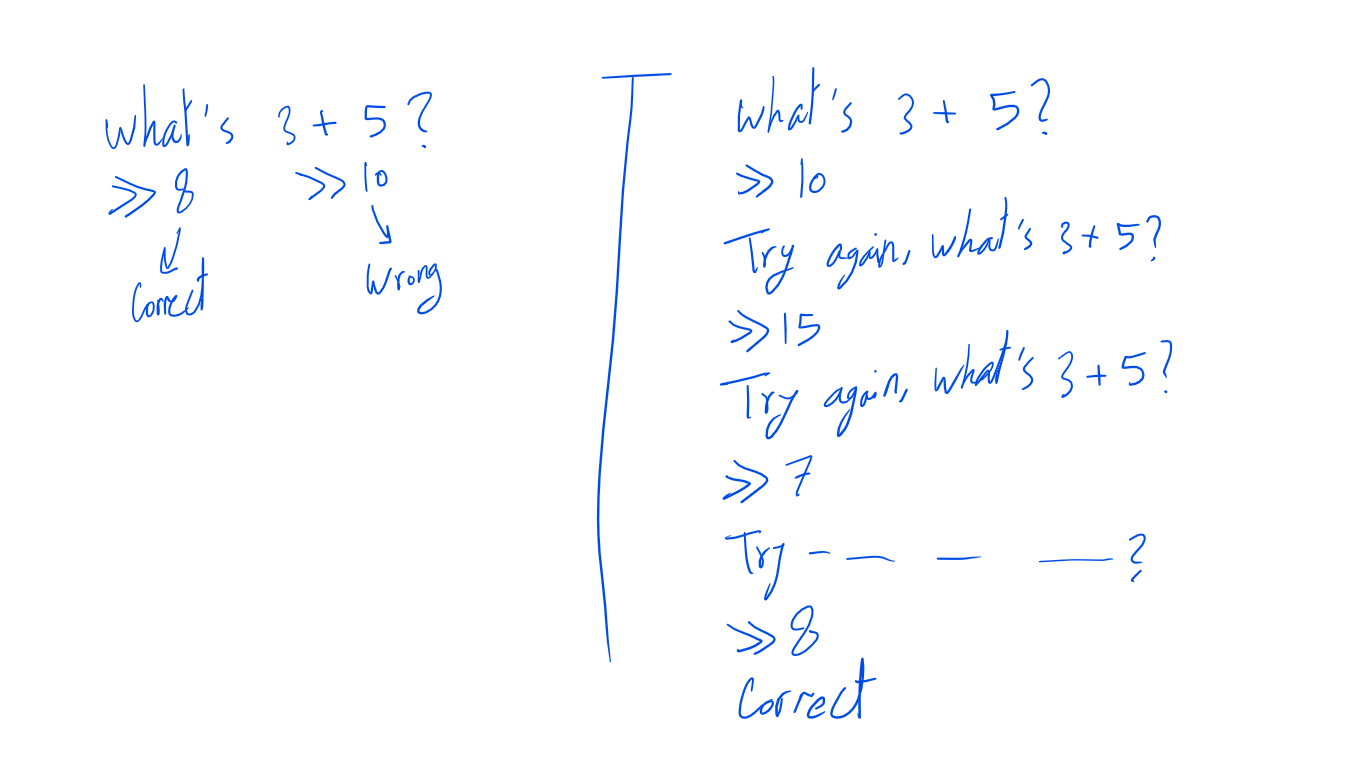 what's 3 + 5 ?
≫ 8 ≫ 10
Correct Wrong
what's 3 + 5?
≫ 10
Try again, what's 3 + 5?
≫ 15
Try again, what's 3 + 5?
≫ 7
Try - — — —?
≫ 8
Correct